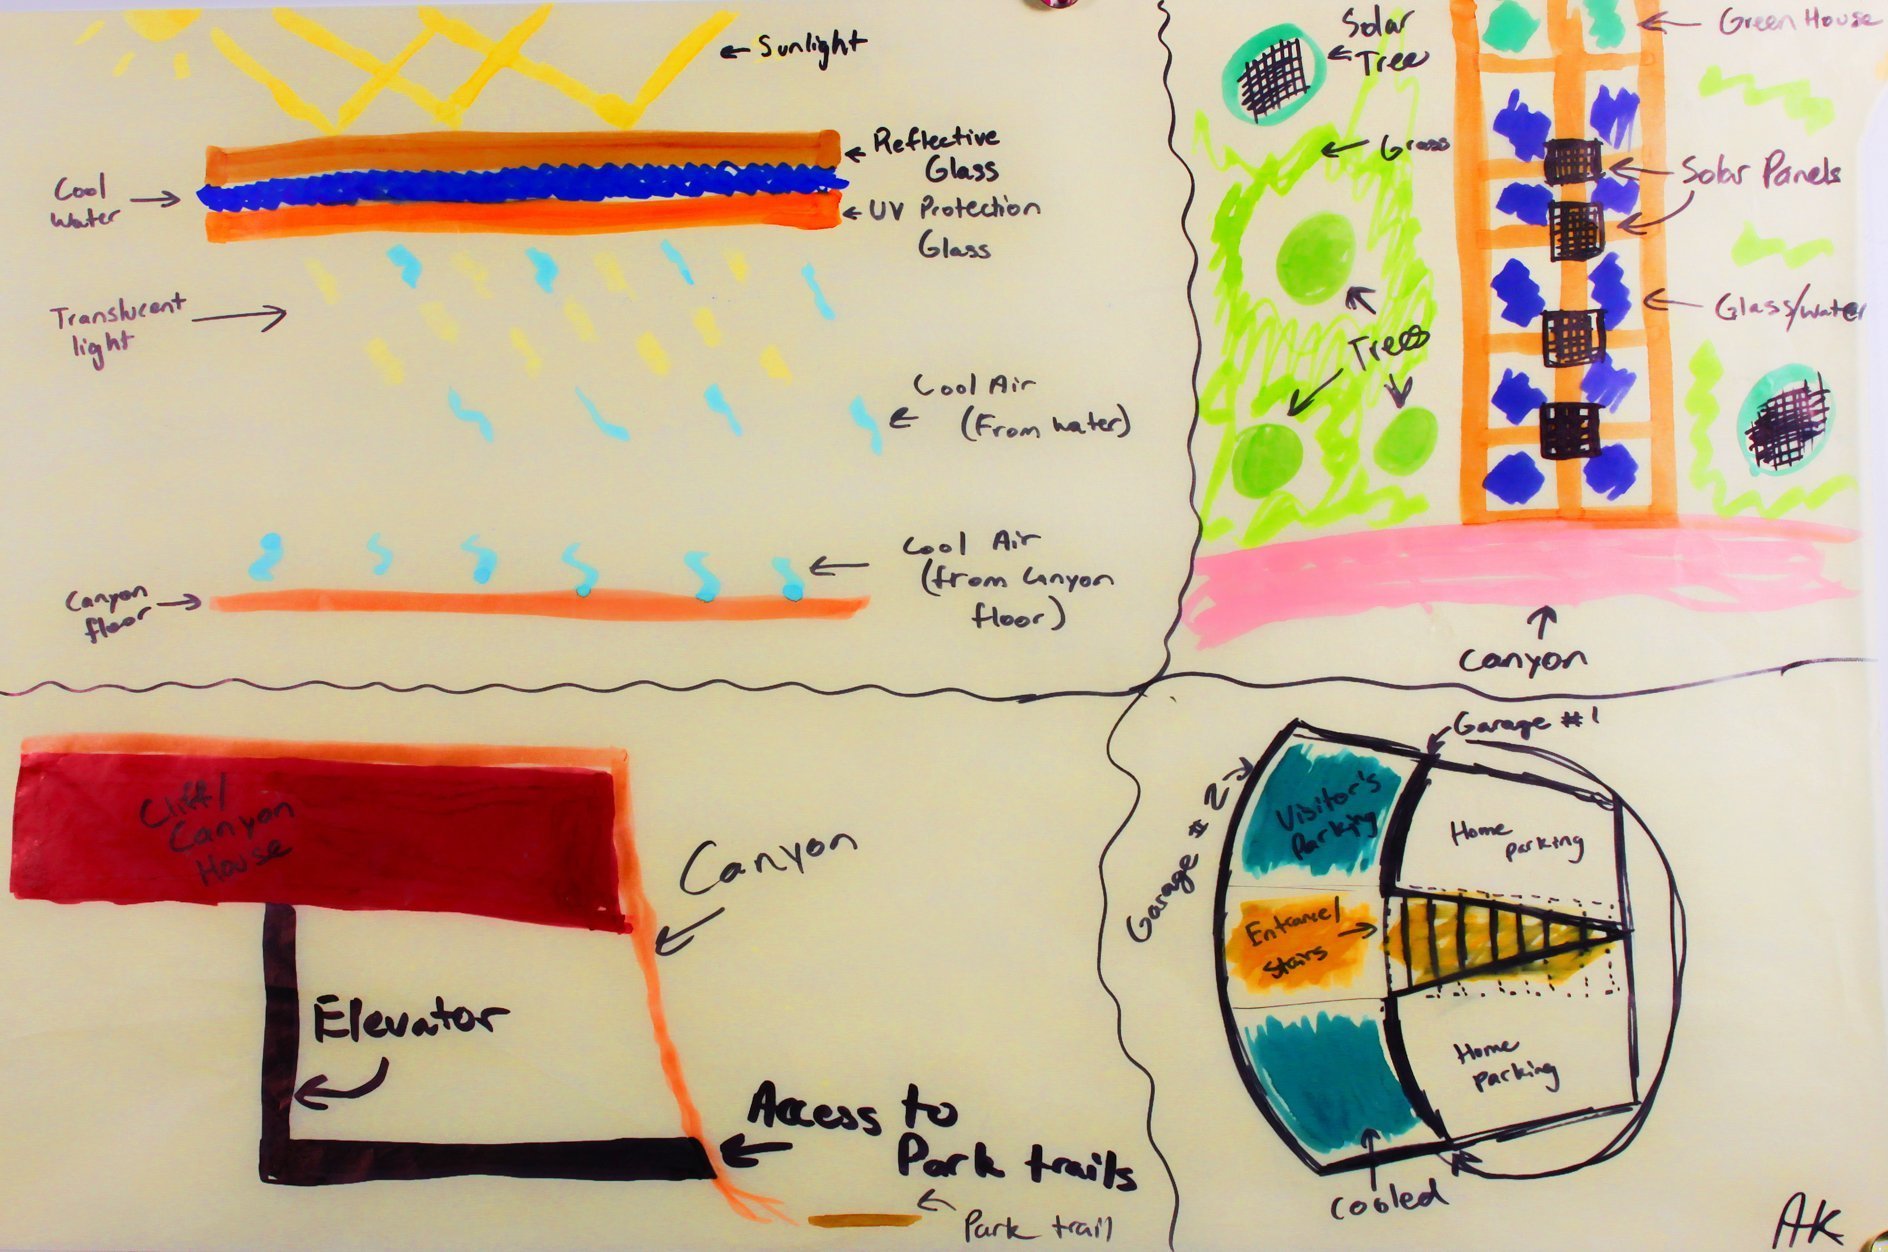 Sunlight
Reflective
Glass
Cool
Water
UV Protection
Glass
Translucent
light
Cool Air
(From water)
Cool Air
(from Canyon
floor)
Canyon
floor
Solar
Tree
Green House
Grass
Solar Panels
Glass/water
Trees
Canyon
Cliff/
Canyon
House
Canyon
Elevator
Access to
Park trails
Park trail
Garage #1
Garage #2
Visitor's
Parking
Home
parking
Entrance/
Stairs
Home
parking
Cooled
AK